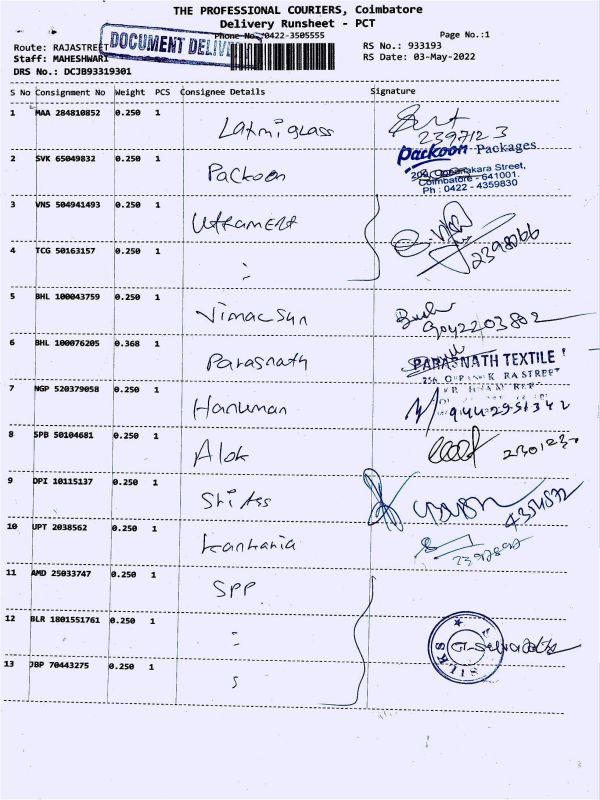 THE PROFESSIONAL COURIERS, Coimbatore
Delivery Runsheet - PCT
Phone No.*0422-3505555 Page No.:1
DOCUMENT
Route: RAJASTREET RS No.: 933193
Staff: MAHESHWARI RS Date: 03-May-2022
DRS No.: DCJB93319301
S No Consignment No Weight PCS Consignee Details Signature
1 MAA 284810852 0.250 1 Laxmi glass
2397123
2 SVK 65049832 0.250 1 Packoon Packoon Packages
Street,
Coimbatore - 641001.
Ph : 0422 - 4359830
3 VNS 504941493 0.250 1
4 TCG 50163157 0.250 1 " 2398066
5 BHL 100043759 0.250 1 Vimac Sun
9042203802
6 BHL 100076205 0.368 1 Parasnath PARASNATH TEXTILE
7 NGP 520379058 0.250 1 Hanuman
8 SPB 50104681 0.250 1 Alok
9 DPI 10115137 0.250 1
10 UPT 2038562 0.250 1 Kankaria
11 AMD 25033747 0.250 1 SPP
12 BLR 1801551761 0.250 1 "
13 JBP 70443275 0.250 1
SILKS